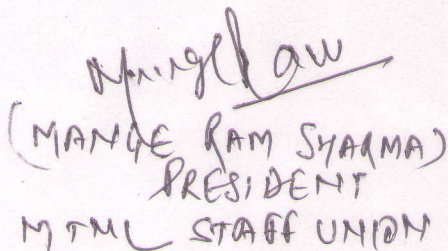 (MANGE RAM SHARMA)
PRESIDENT
MTNL STAFF UNION